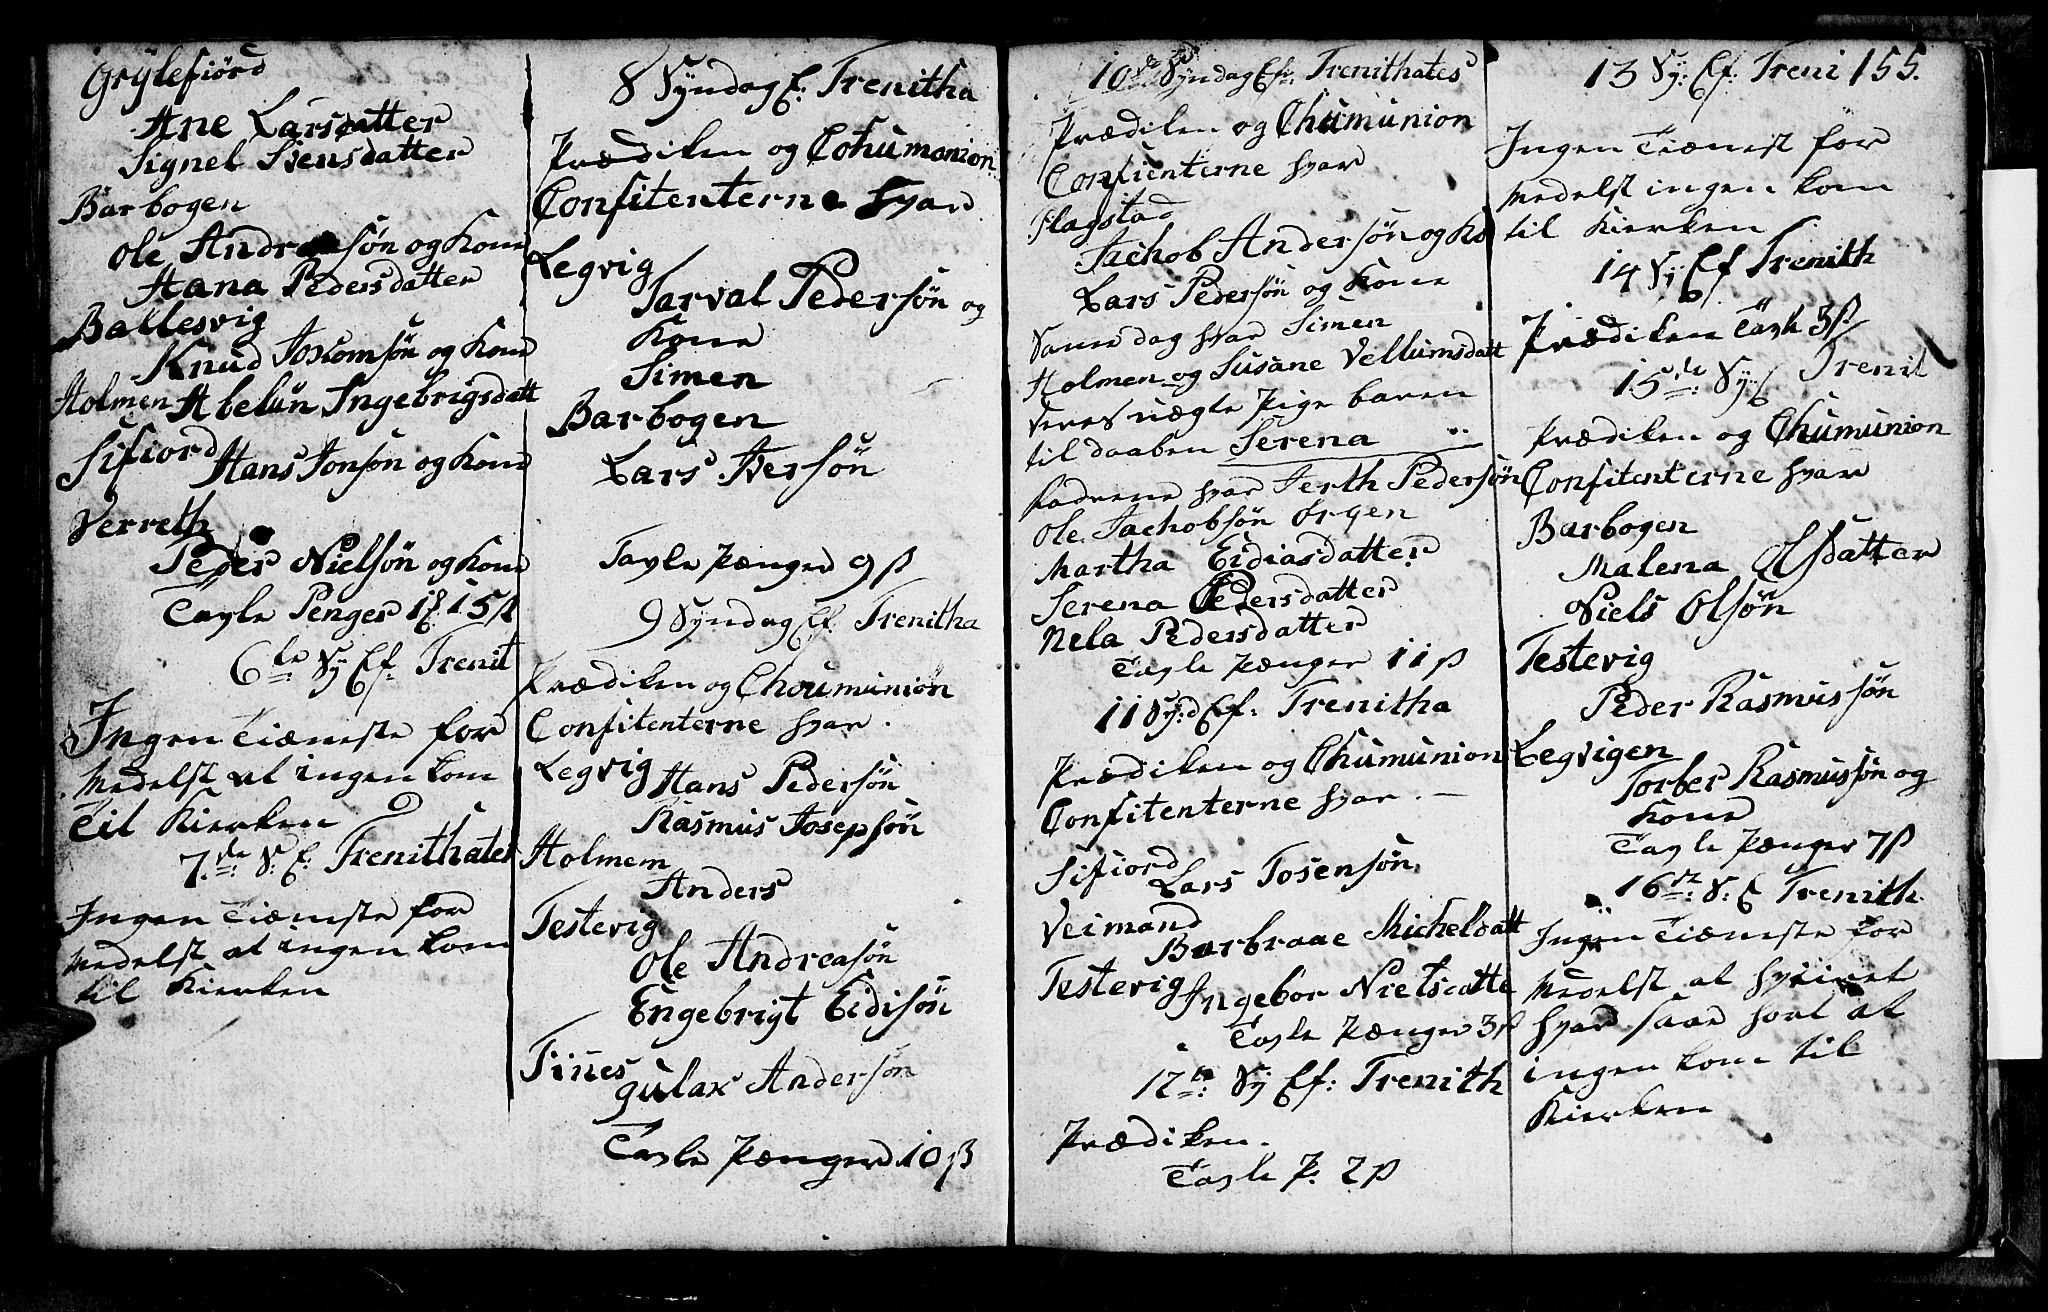 Grÿlefiörd
Ane Larsdatter
Signel Siensdatter
Barbogen
Ole Andreasøn og Kone
Hana Pedersdatter
Ballesvig
Knud Joxomsøn og Kone
Holmen Abelun Ingebrigsdatt
Sifiord Hans Jonsøn og Kone
Verreth
Peder Nielsøn og Kone
Tayle Penger 1ß 15ß
6te Sy Ef: Trenit
Ingen Tiænste for
Medelst at ingen kom
Til Kierken
7de S: E: Trenithates
Ingen Tiænste for
Medelst at ingen kom
til Kierken
8 Syndag E: Trenitha
Prædiken og Cohumonion
Confitenterne hvar
Legvig
Tarval Pedersøn og
Kone
Simen
Barbogen
Lars Iversøn
Tayle Pænger 9ß
9 Syndag Ef: Trenitha
Prædiken og Choumunion
Confitenterne hvar.
Legvig Hans Pedersøn
Rasmus Josepsøn
Holmem
Anders
Testevig
Ole Andreasøn
Engebrigt Eidisøn
Finnes
Gulax Andersøn
Tayle Pænger 10ß
10de Syndag Ef: Trenithates
Prædiken og Chumunion
Confienterne hvar
Flagstad
Jachob Andersøn og Ko
Lars Pedersøn og Kone
Same dag hvar Simen
Holmen og Susane Vellumsdatt
Veres uægte Pige baren
til daaben Serena
Fadrene hvar Jerth Pedersøn
Ole Jachobsøn Ørgen
Martha Eidiasdatter
Serena Pedersdatter
Nela Pedersdatter
Tayle Pænger 11ß
11 Syd Ef: Trenitha
Prædiken og Chumunion
Confitenterne hvar.
Sifiord
Lars Tosensøn
Veimand
Barbraae Micheldatt
Testevig Ingebor Nielsdatte
Tayle Pænger 3ß
12te Sy Ef: Trenith
Prædiken.
Tayle P: 2ß
13 Sy: Ef: Treni 155.
Ingen Tiænest for
Medelst ingen kom
til Kierken
14 Sy Ef Trenith
Prædiken Tayle 3ß
15de Sy: Ef Trenit
Prædiken og Chumunion
Confitenterne hvar
Barbogen
Malena Olsdatter
Niels Olsøn
Testevig
Peder Rasmussøn
Legvigen
Torber Rasmussøn og
Kone
Tayle Pænger 7ß
16te S: E Trenith.
Ingen Tiænste for
Medelst at hveiret
hvar saar hoxt at
ingen kom til
Kierken